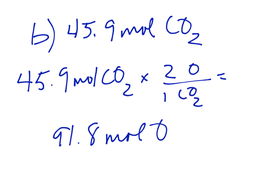 b) 45.9 mol CO₂
45.9 mol CO₂ × 2 O / 1 CO₂ =
91.8 mol O